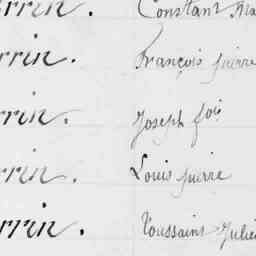 rrin. Constant
rrin. François pierre
rrin. Joseph fois
rrin. Louis pierre
rrin. Toussaint Julie